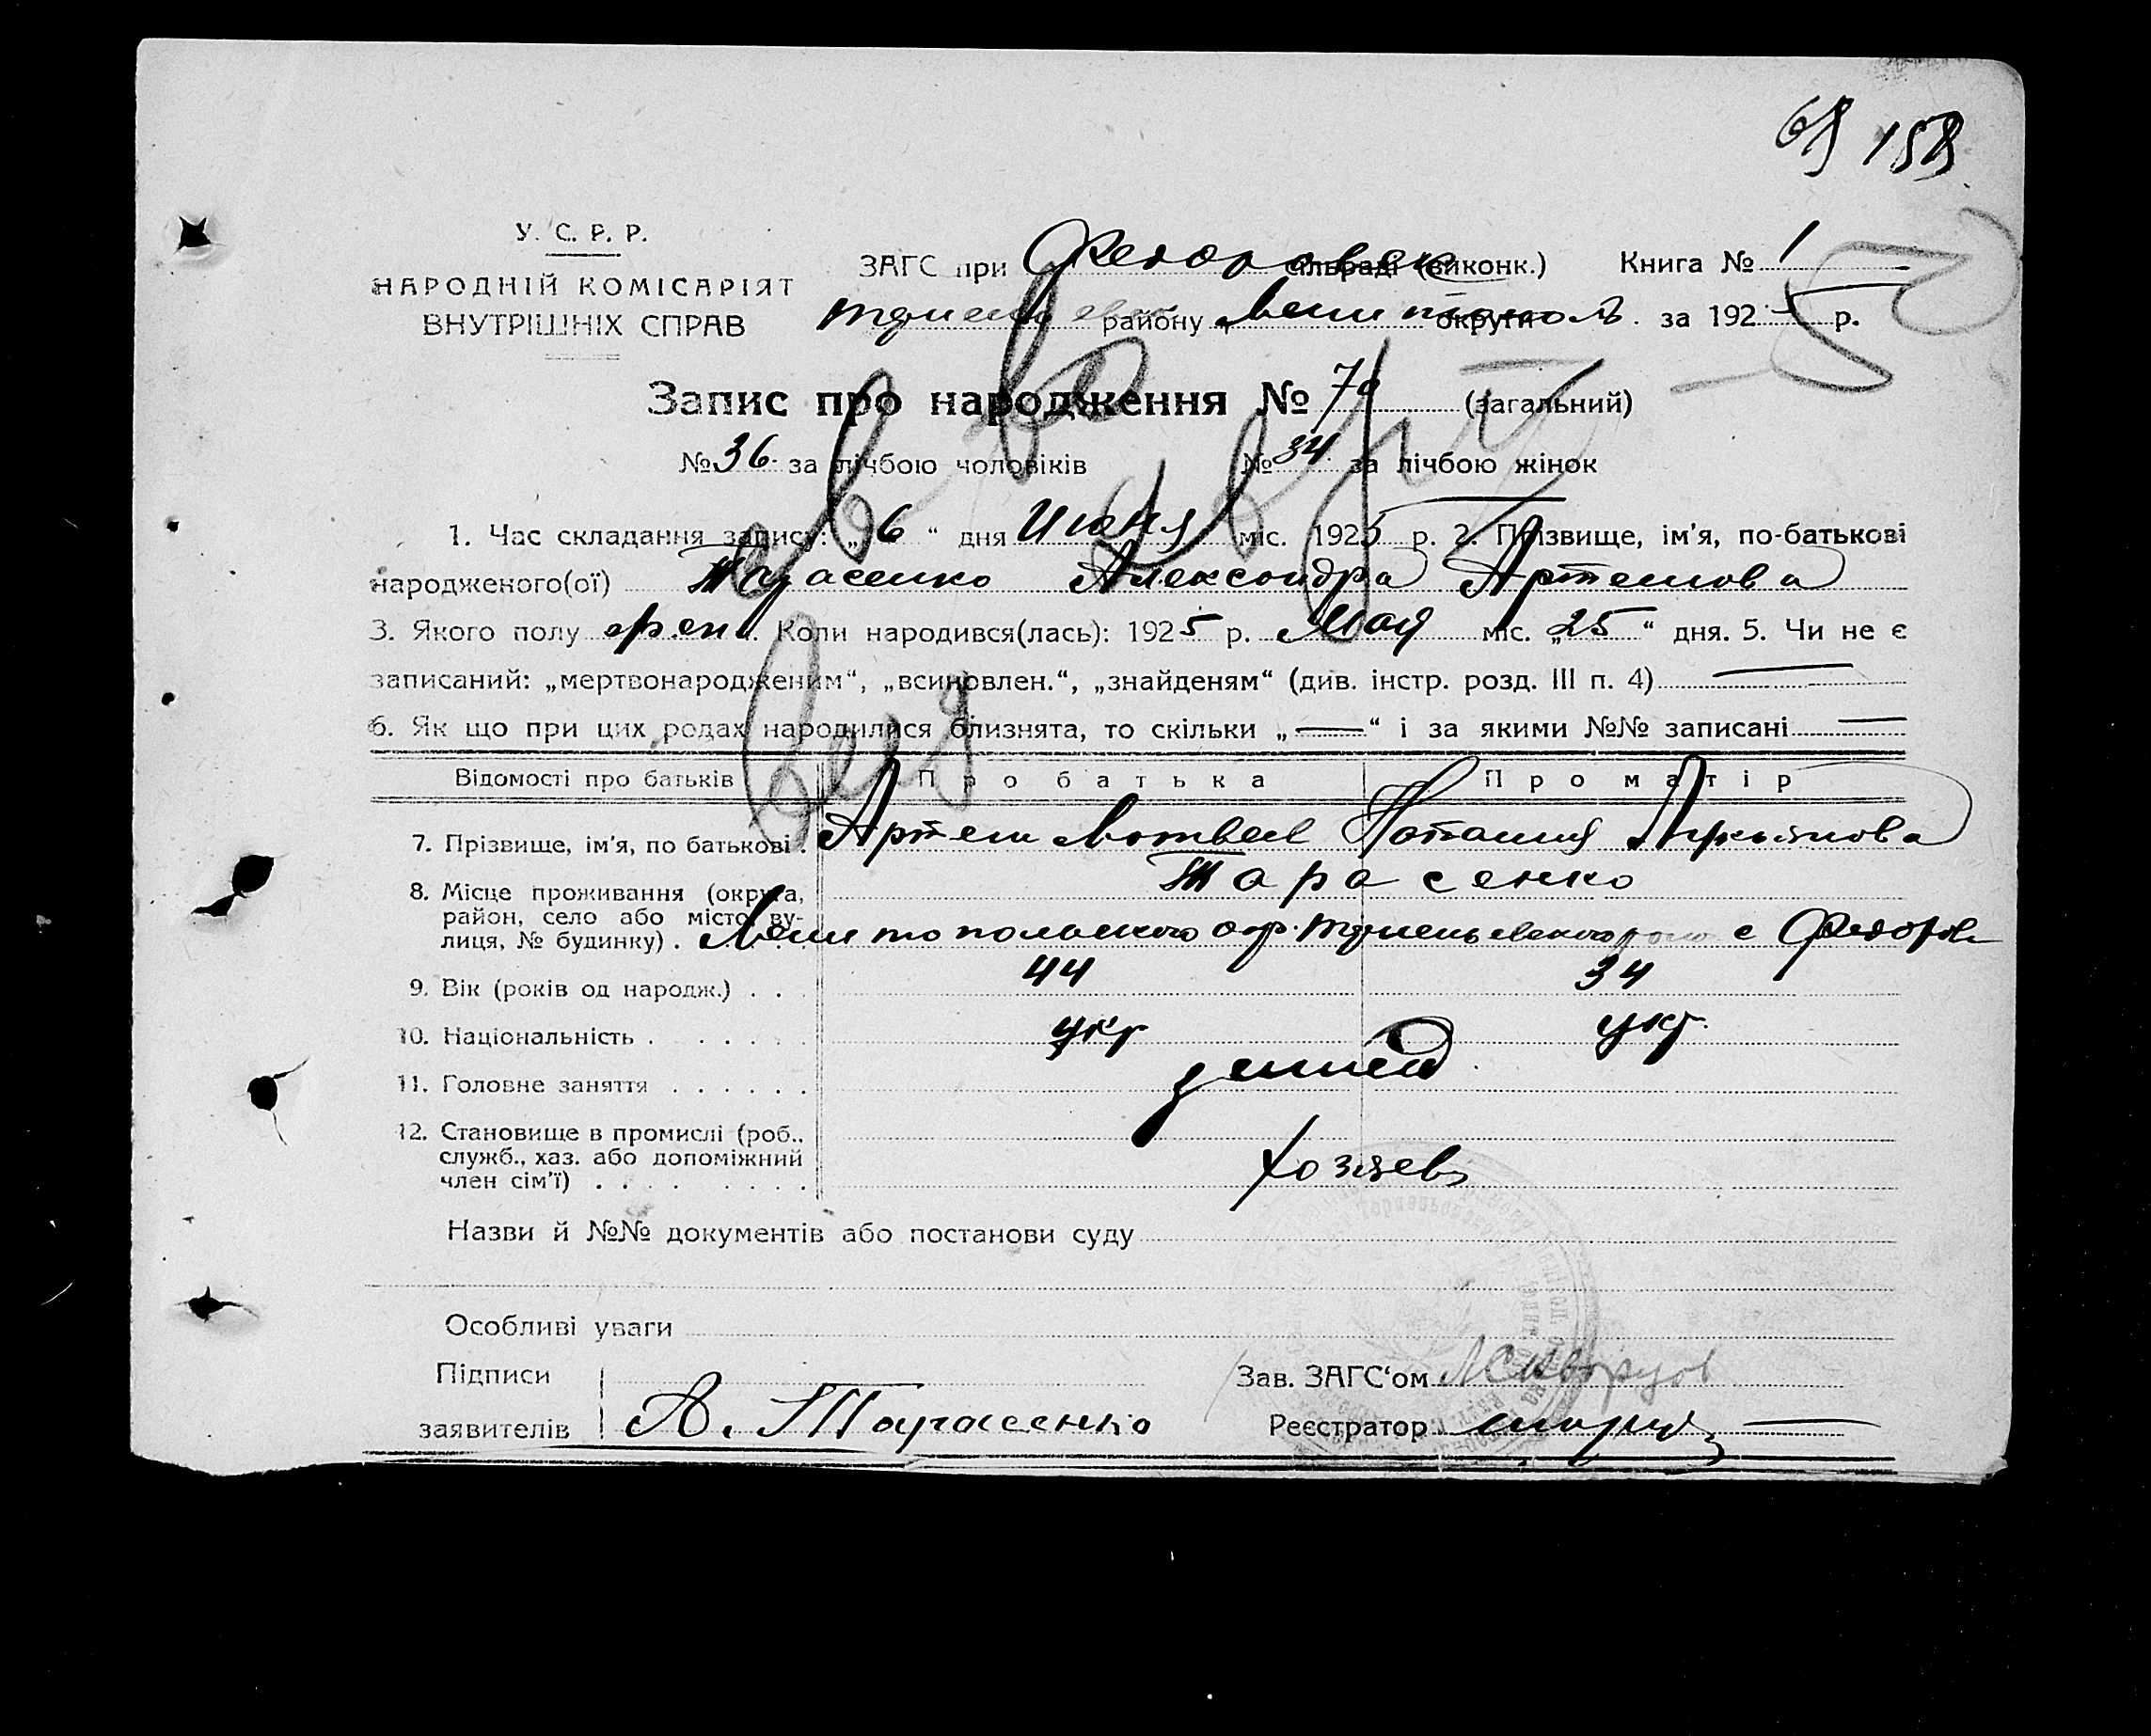 158
У. С. Р. Р.
НАРОДНІЙ КОМІСАРІЯТ
ВНУТРІШНІХ СПРАВ
ЗАГС при Федоровск сільраді (виконк.) Книга № 1
району Мелитополь округи за 1925 р.
Запис про народження № 70 (загальний)
№ 36 за лічбою чоловіків № 34 за лічбою жінок
1. Час складання запису: „6“ дня Июня міс. 1925 р. 2. Прізвище, ім'я, по-батькові
народженого(ої) Тарасенко Александра Артемова
3. Якого полу жен. Коли народився(лась): 1925 р. Мая міс. „25“ дня. 5. Чи не є
записаний: „мертвонародженим“, „всиновлен.“, „знайденям“ (див. інстр. розд. III п. 4)
6. Як що при цих родах народилися близнята, то скільки „—“ і за якими №№ записані —
Відомості про батьків Про батька Про матір
7. Прізвище, ім'я, по батькові . Артем Матвеев Наталия Лукьянова
Тарасенко
8. Місце проживання (округа,
район, село або місто, ву-
лиця, № будинку) . Мелитопольского окр. с Федоровка
9. Вік (років од народж.) . . . 44 34
10. Національність . . . . . . укр укр.
11. Головне заняття . . . . . .
12. Становище в промислі (роб.,
служб., хаз. або допоміжний
член сім'ї) . . . . . . . . Хозяев
Назви й №№ документів або постанови суду
Особливі уваги
Підписи
заявителів А. Тарасенко
Зав. ЗАГС'ом Скворцов
Реєстратор